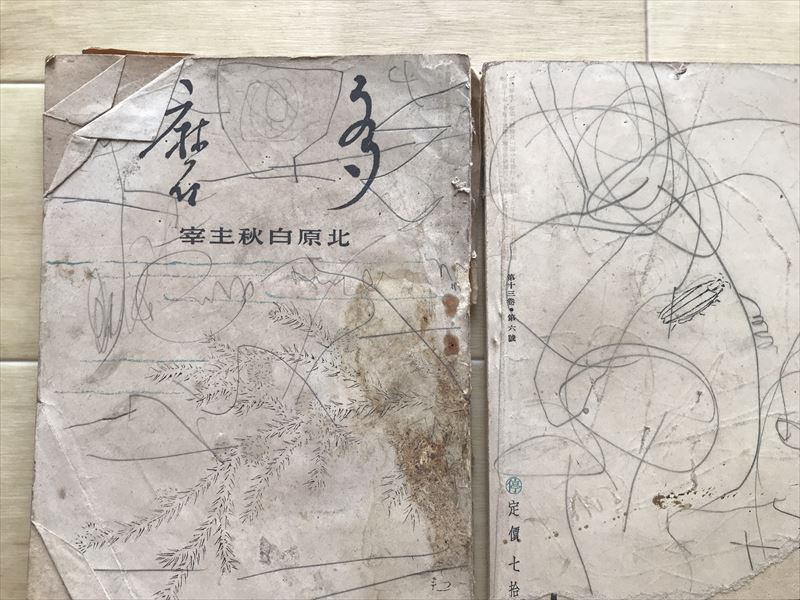 多磨
北原白秋主宰
第十三卷・第六號
停 定價七拾